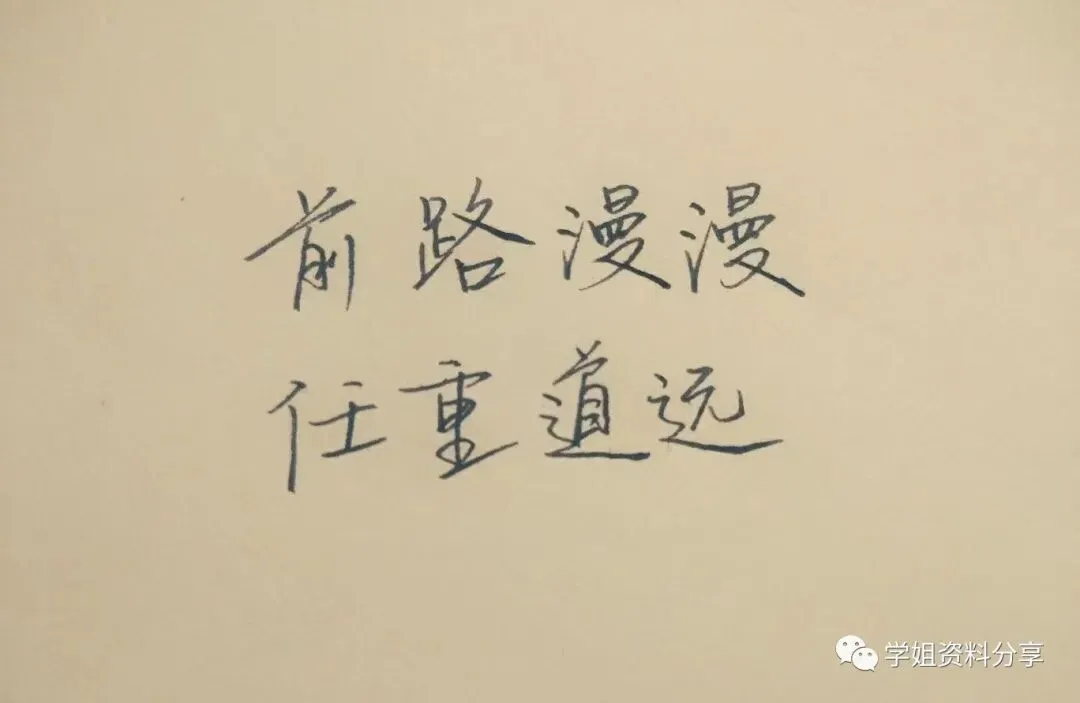 前路漫漫
任重道远
学姐资料分享